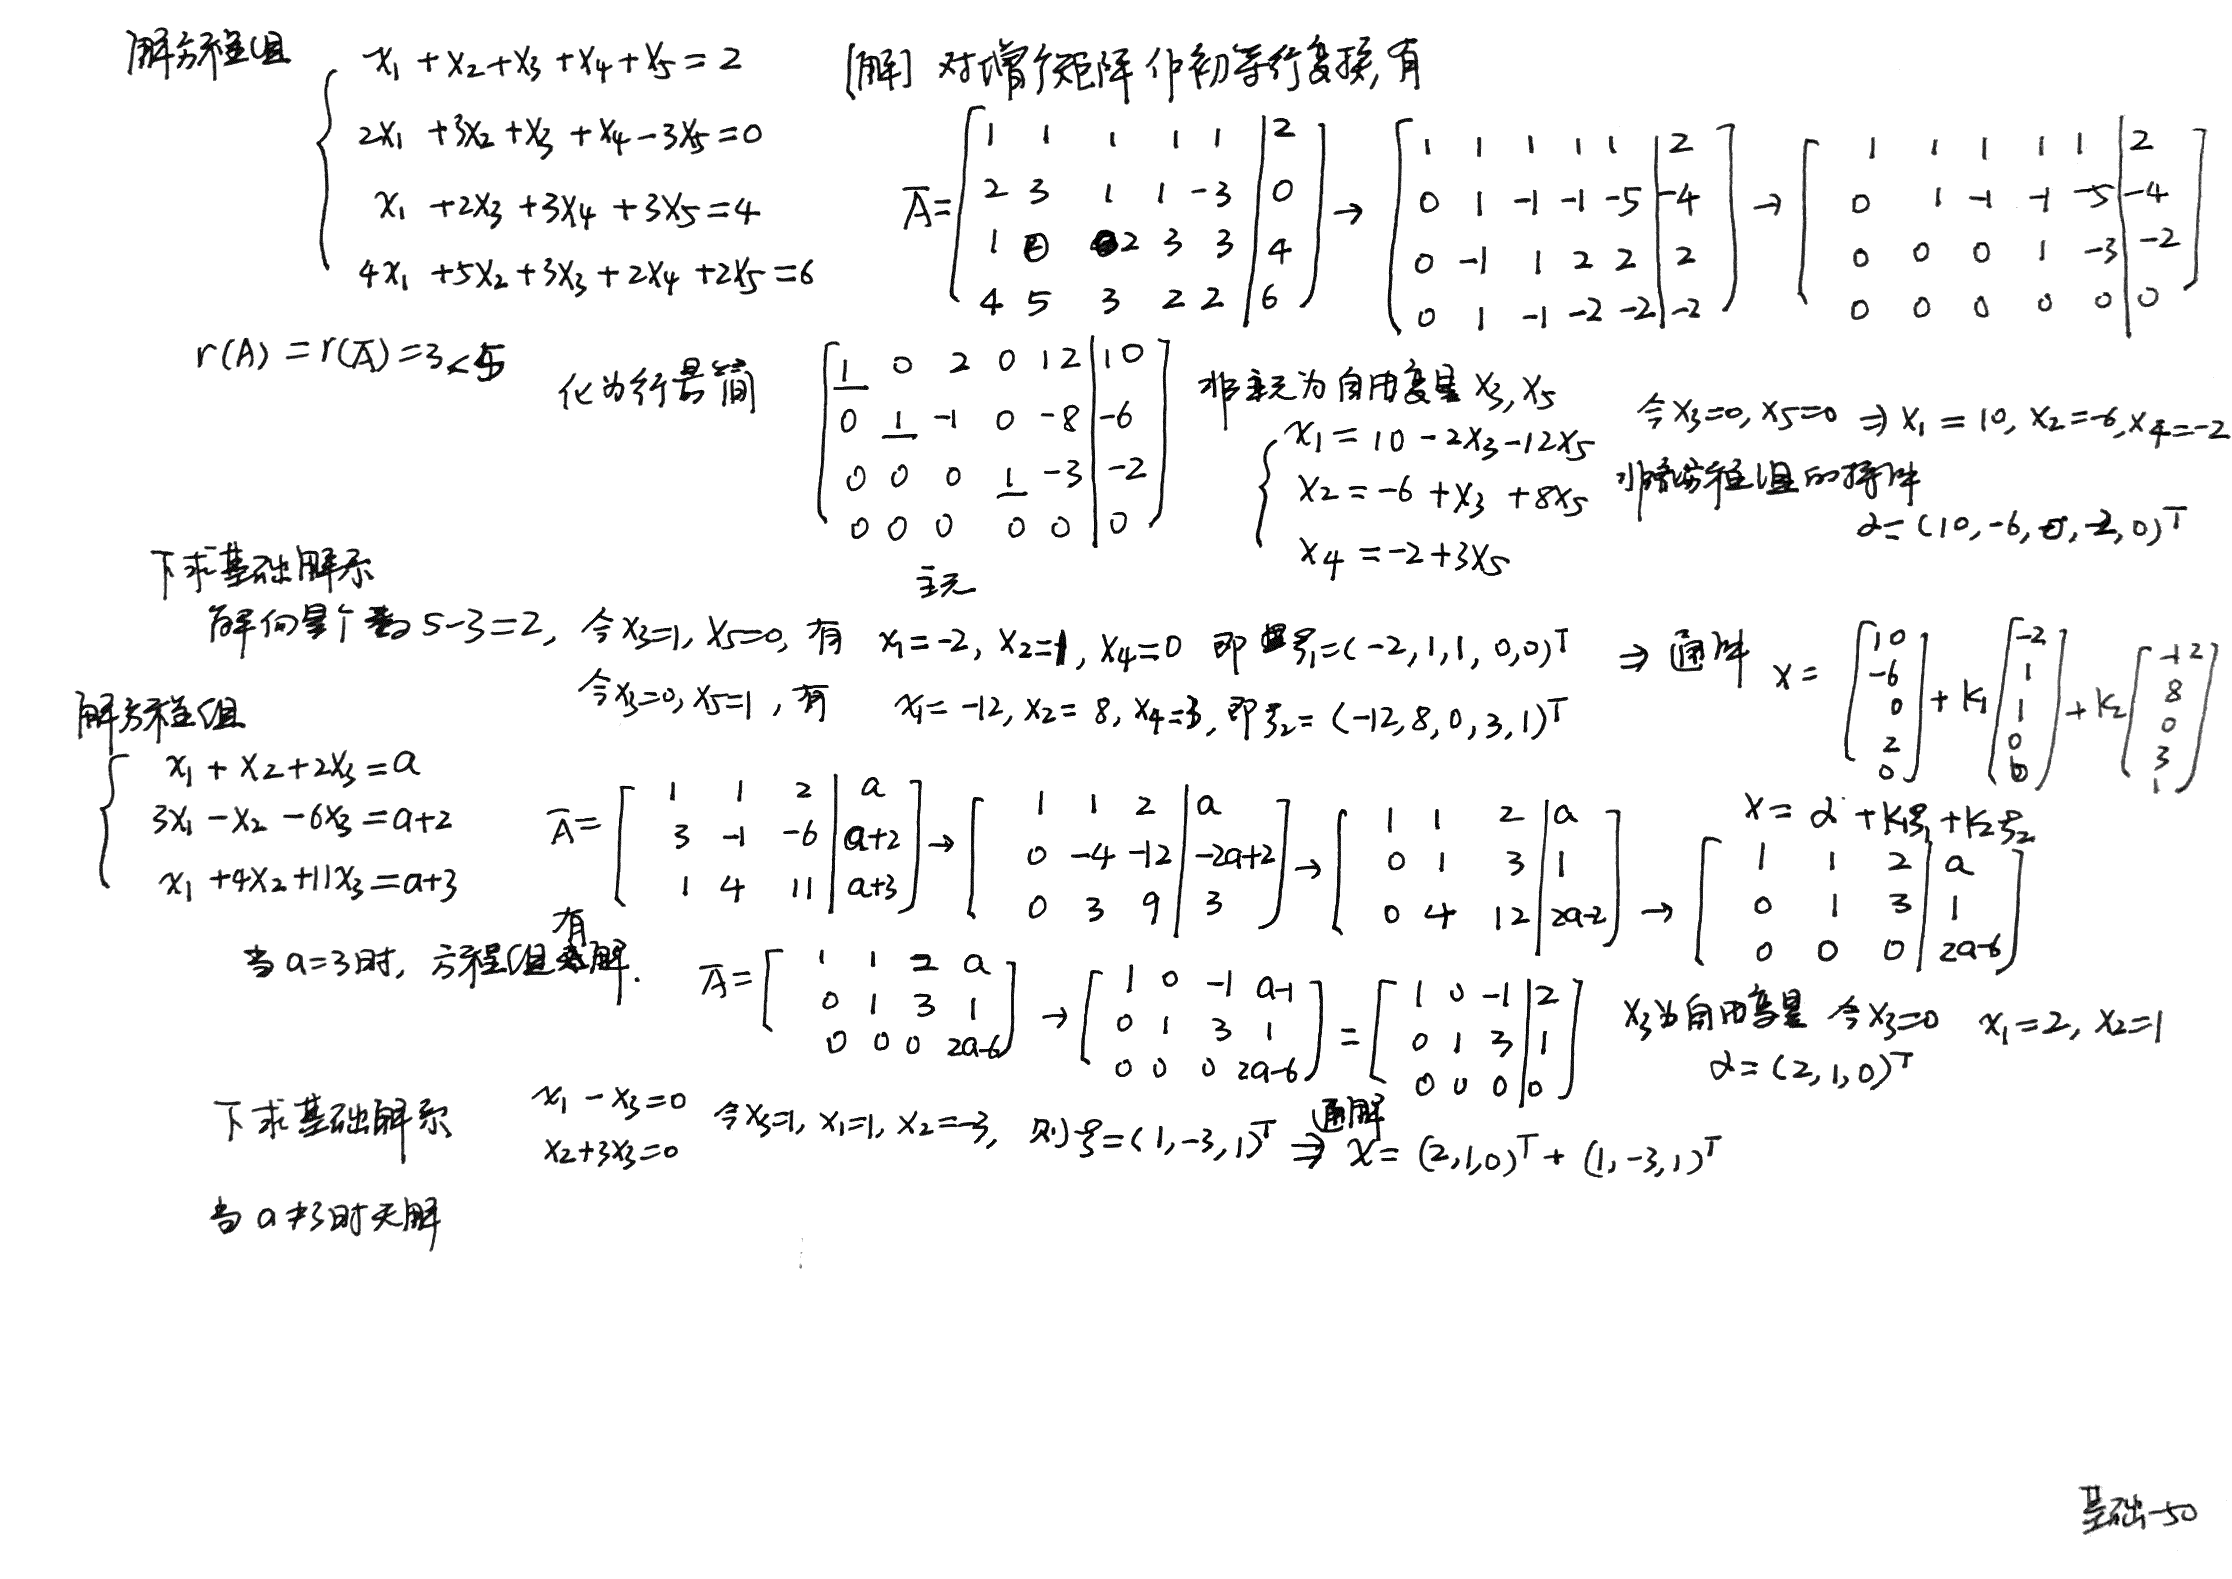 解方程组
x₁+x₂+x₃+x₄+x₅=2
2x₁+3x₂+x₃+x₄-3x₅=0
x₁+2x₃+3x₄+3x₅=4
4x₁+5x₂+3x₃+2x₄+2x₅=6
[解] 对增广矩阵作初等行变换,有
Ā= [1 1 1 1 1 | 2
2 3 1 1 -3 | 0
1 0 2 3 3 | 4
4 5 3 2 2 | 6]
→ [1 1 1 1 1 | 2
0 1 -1 -1 -5 | -4
0 -1 1 2 2 | 2
0 1 -1 -2 -2 | -2]
→ [1 1 1 1 1 | 2
0 1 -1 -1 -5 | -4
0 0 0 1 -3 | -2
0 0 0 0 0 | 0]
r(A)=r(Ā)=3<5
化为行最简
[1 0 2 0 12 | 10
0 1 -1 0 -8 | -6
0 0 0 1 -3 | -2
0 0 0 0 0 | 0]
主元
非主元为自由变量 x₃,x₅
x₁=10-2x₃-12x₅
x₂=-6+x₃+8x₅
x₄=-2+3x₅
令x₃=0,x₅=0 ⇒ x₁=10, x₂=-6,x₄=-2
非齐次方程组的特解
α=(10,-6,0,-2,0)ᵀ
下求基础解系
解向量个数5-3=2, 令x₃=1, x₅=0, 有 x₁=-2, x₂=1, x₄=0 即ξ₁=(-2,1,1,0,0)ᵀ
令x₃=0,x₅=1,有 x₁=-12, x₂=8, x₄=3, 即ξ₂=(-12,8,0,3,1)ᵀ
⇒ 通解 x= [10
-6
0
2
0] +k₁ [-2
1
1
0
0] +k₂ [-12
8
0
3
1]
x=α+k₁ξ₁+k₂ξ₂
解方程组
x₁+x₂+2x₃=a
3x₁-x₂-6x₃=a+2
x₁+4x₂+11x₃=a+3
Ā= [1 1 2 | a
3 -1 -6 | a+2
1 4 11 | a+3]
→ [1 1 2 | a
0 -4 -12 | -2a+2
0 3 9 | 3]
→ [1 1 2 | a
0 1 3 | 1
0 4 12 | 2a-2]
→ [1 1 2 | a
0 1 3 | 1
0 0 0 | 2a-6]
当a=3时, 方程组有解.
Ā= [1 1 2 a
0 1 3 1
0 0 0 2a-6]
→ [1 0 -1 a-1
0 1 3 1
0 0 0 2a-6]
= [1 0 -1 | 2
0 1 3 | 1
0 0 0 | 0]
x₃为自由变量 令x₃=0 x₁=2, x₂=1
α=(2,1,0)ᵀ
下求基础解系
x₁-x₃=0
x₂+3x₃=0
令x₃=1, x₁=1, x₂=-3, 则ξ=(1,-3,1)ᵀ ⇒ 通解 x=(2,1,0)ᵀ+(1,-3,1)ᵀ
当a≠3时无解
基础-50